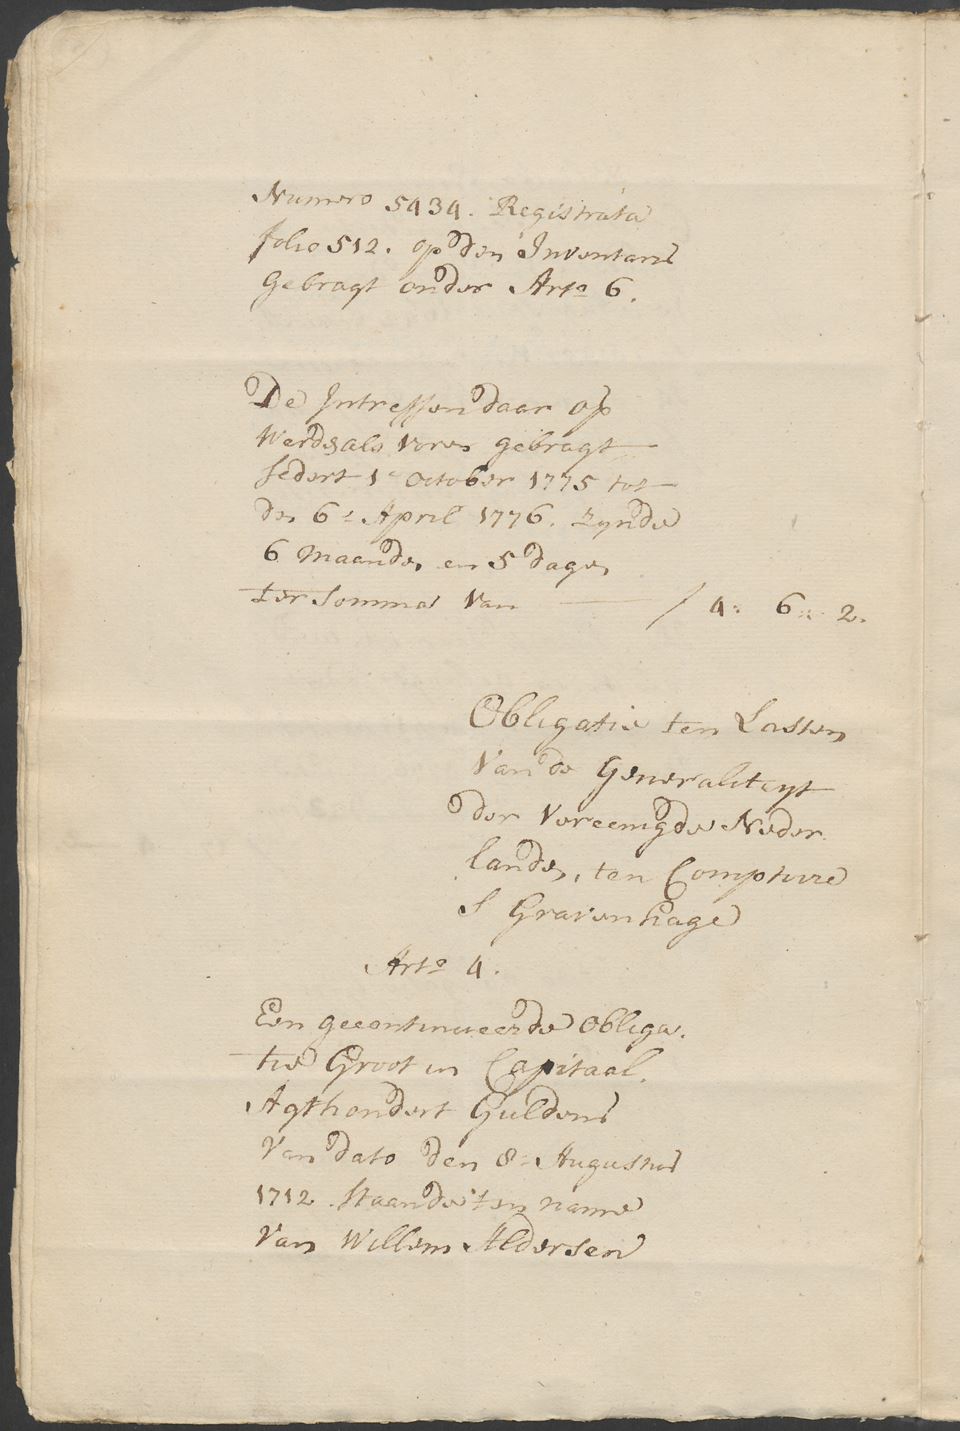 Numero 5434. Registrata
folio 512. op den Inventaris
Gebragt onder Arto 6.
De Intressen daar op
Werdt als vores gebragt
sedert 1e October 1775 tot
den 6e April 1776. zynde
6 Maanden en 5 dagen
ter Somma van — f 4: 6: 2.
Obligatie ten Lasten
Van de Generaliteyt
der Vereenigde Neder
landen, ten Comptoire
S Gravenhage
Arto 4.
Een gecontinueerde Obliga
tie Groot in Capitaal
Agthondert Guldens
Van dato den 8e Augustus
1712 Staande ten name
Van Willem Aldersen